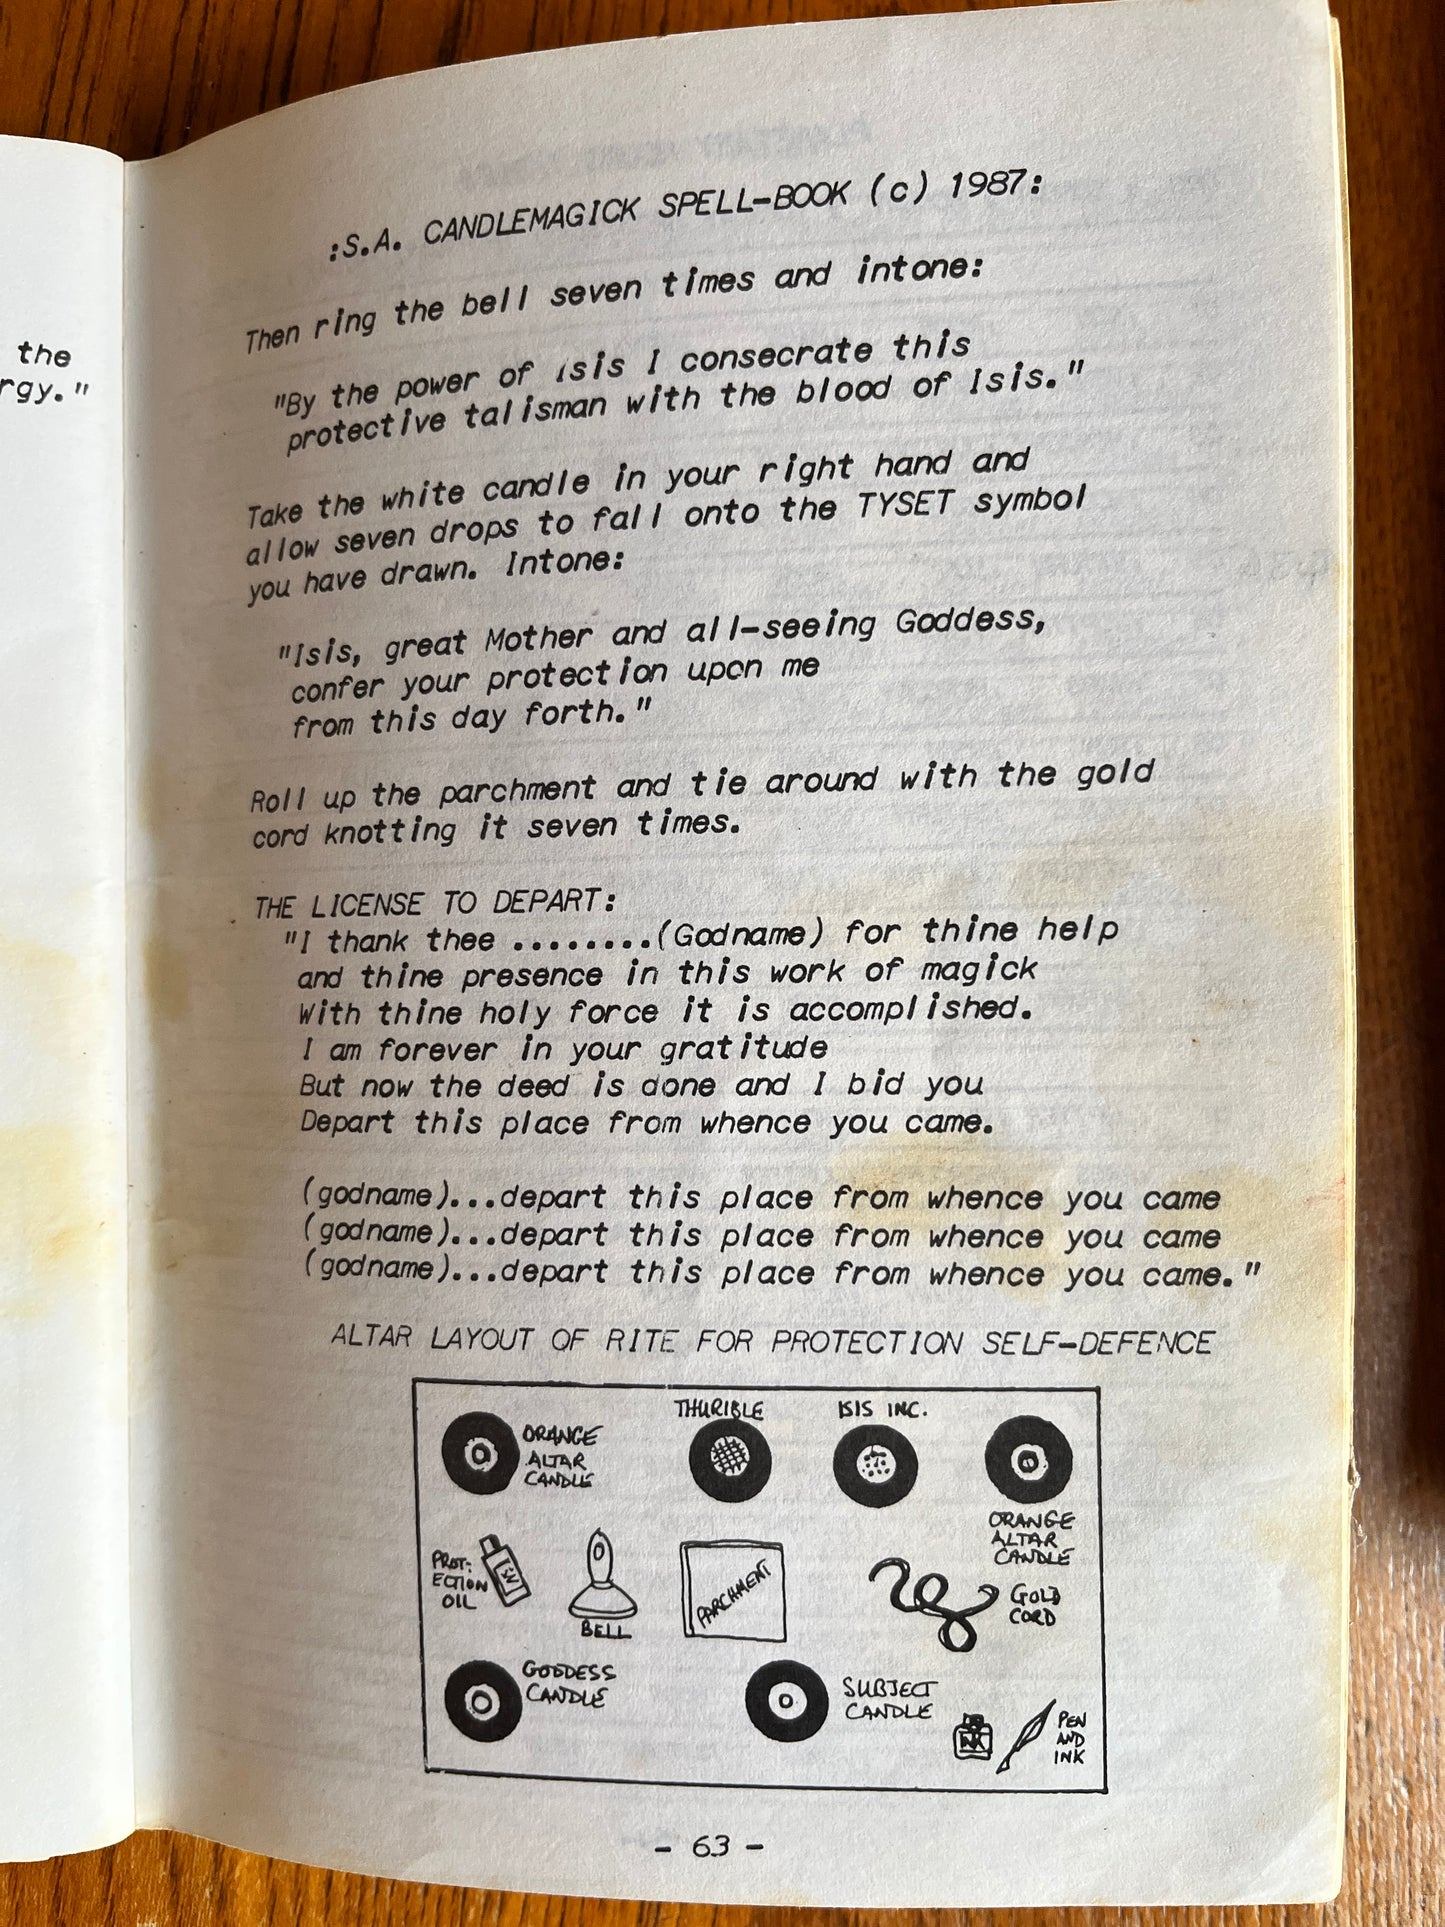 the
rgy."
:S.A. CANDLEMAGICK SPELL-BOOK (c) 1987:
Then ring the bell seven times and intone:
"By the power of Isis I consecrate this
protective talisman with the blood of Isis."
Take the white candle in your right hand and
allow seven drops to fall onto the TYSET symbol
you have drawn. Intone:
"Isis, great Mother and all-seeing Goddess,
confer your protection upon me
from this day forth."
Roll up the parchment and tie around with the gold
cord knotting it seven times.
THE LICENSE TO DEPART:
"I thank thee ........(Godname) for thine help
and thine presence in this work of magick
With thine holy force it is accomplished.
I am forever in your gratitude
But now the deed is done and I bid you
Depart this place from whence you came.
(godname)...depart this place from whence you came
(godname)...depart this place from whence you came
(godname)...depart this place from whence you came."
ALTAR LAYOUT OF RITE FOR PROTECTION SELF-DEFENCE
ORANGE
ALTAR
CANDLE
THURIBLE
ISIS INC.
ORANGE
ALTAR
CANDLE
PROT-
ECTION
OIL
BELL
PARCHMENT
GOLD
CORD
GODDESS
CANDLE
SUBJECT
CANDLE
INK
PEN
AND
INK
- 63 -